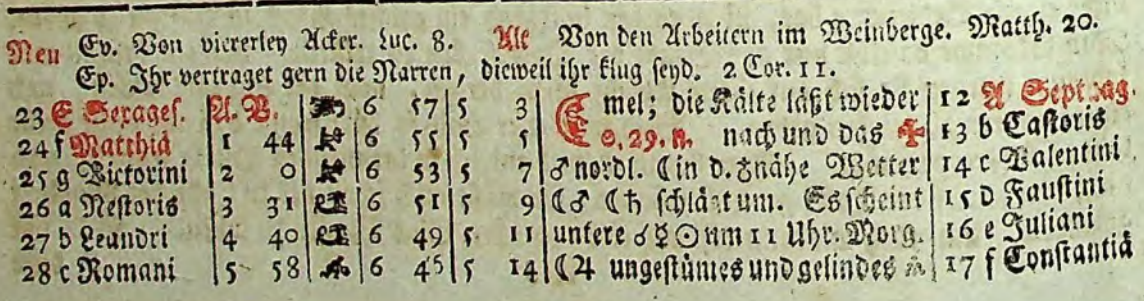 Neu Ev. Von viererley Acker. Luc. 8. Alt Von den Arbeitern im Weinberge. Matth. 20.
Ep. Ihr vertraget gern die Narren, dieweil ihr klug seyd. 2 Cor. 11.
23 E Sexages. A. V. 6 57 5 3 mel; die Kälte läßt wieder 12 A Septuag.
24 f Matthiä 1 44 6 55 5 5 ☾ 0, 29. n. nach und das 13 b Castoris
25 g Victorini 2 0 6 53 5 7 ♂ nordl. ☾ in d. Ednähe Wetter 14 c Valentini
26 a Nestoris 3 31 6 51 5 9 ☾♂ ☾♄ schlägt um. Es scheint 15 D Faustini
27 b Leandri 4 40 6 49 5 11 untere ☌ ☿ ☉ um 11 Uhr. Morg. 16 e Juliani
28 c Romani 5 58 6 45 5 14 ☾♃ ungestümes und gelindes 17 f Constantiä